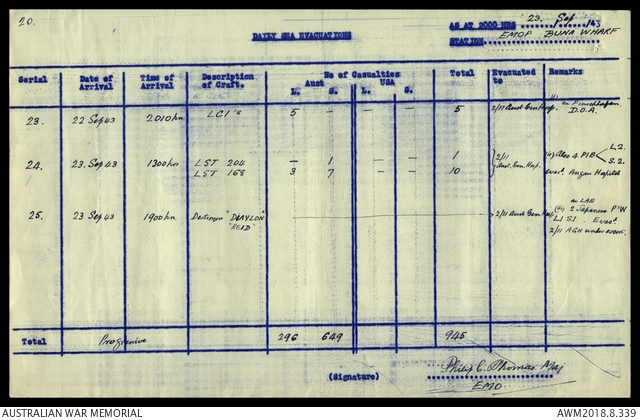 20.
AS AT 2000 HRS 23 Sep /43
DAILY SEA EVACUATIONS
STATION EMOP BUNA WHARF
Serial Date of Arrival Time of Arrival Description of Craft. No of Casualties Aust L. S. USA L. S. Total Evacuated to Remarks
23. 22 Sep 43 2010hrs LCI's 5 - - - 5 2/11 Aust Gen Hosp. ex Finschhafen
D.O.A.
24. 23 Sep 43 1300hrs LST 204 - 1 - - 1 2/11 Aust. Gen. Hosp. Also 4 PIB L2.
S.2.
LST 168 3 7 - - 10 evac. Angau Hospital
25. 23 Sep 43 1900hrs Destroyer "DRAYTON" 2/11 Aust Gen Hosp ex LAE
"REID" 2 Japanese P.W
L1 S1. Evac.
2/11 AGH under escort.
Total Progressive 296 649 945
(Signature) Philip C. Thomas Maj
EMO
AUSTRALIAN WAR MEMORIAL AWM2018.8.339